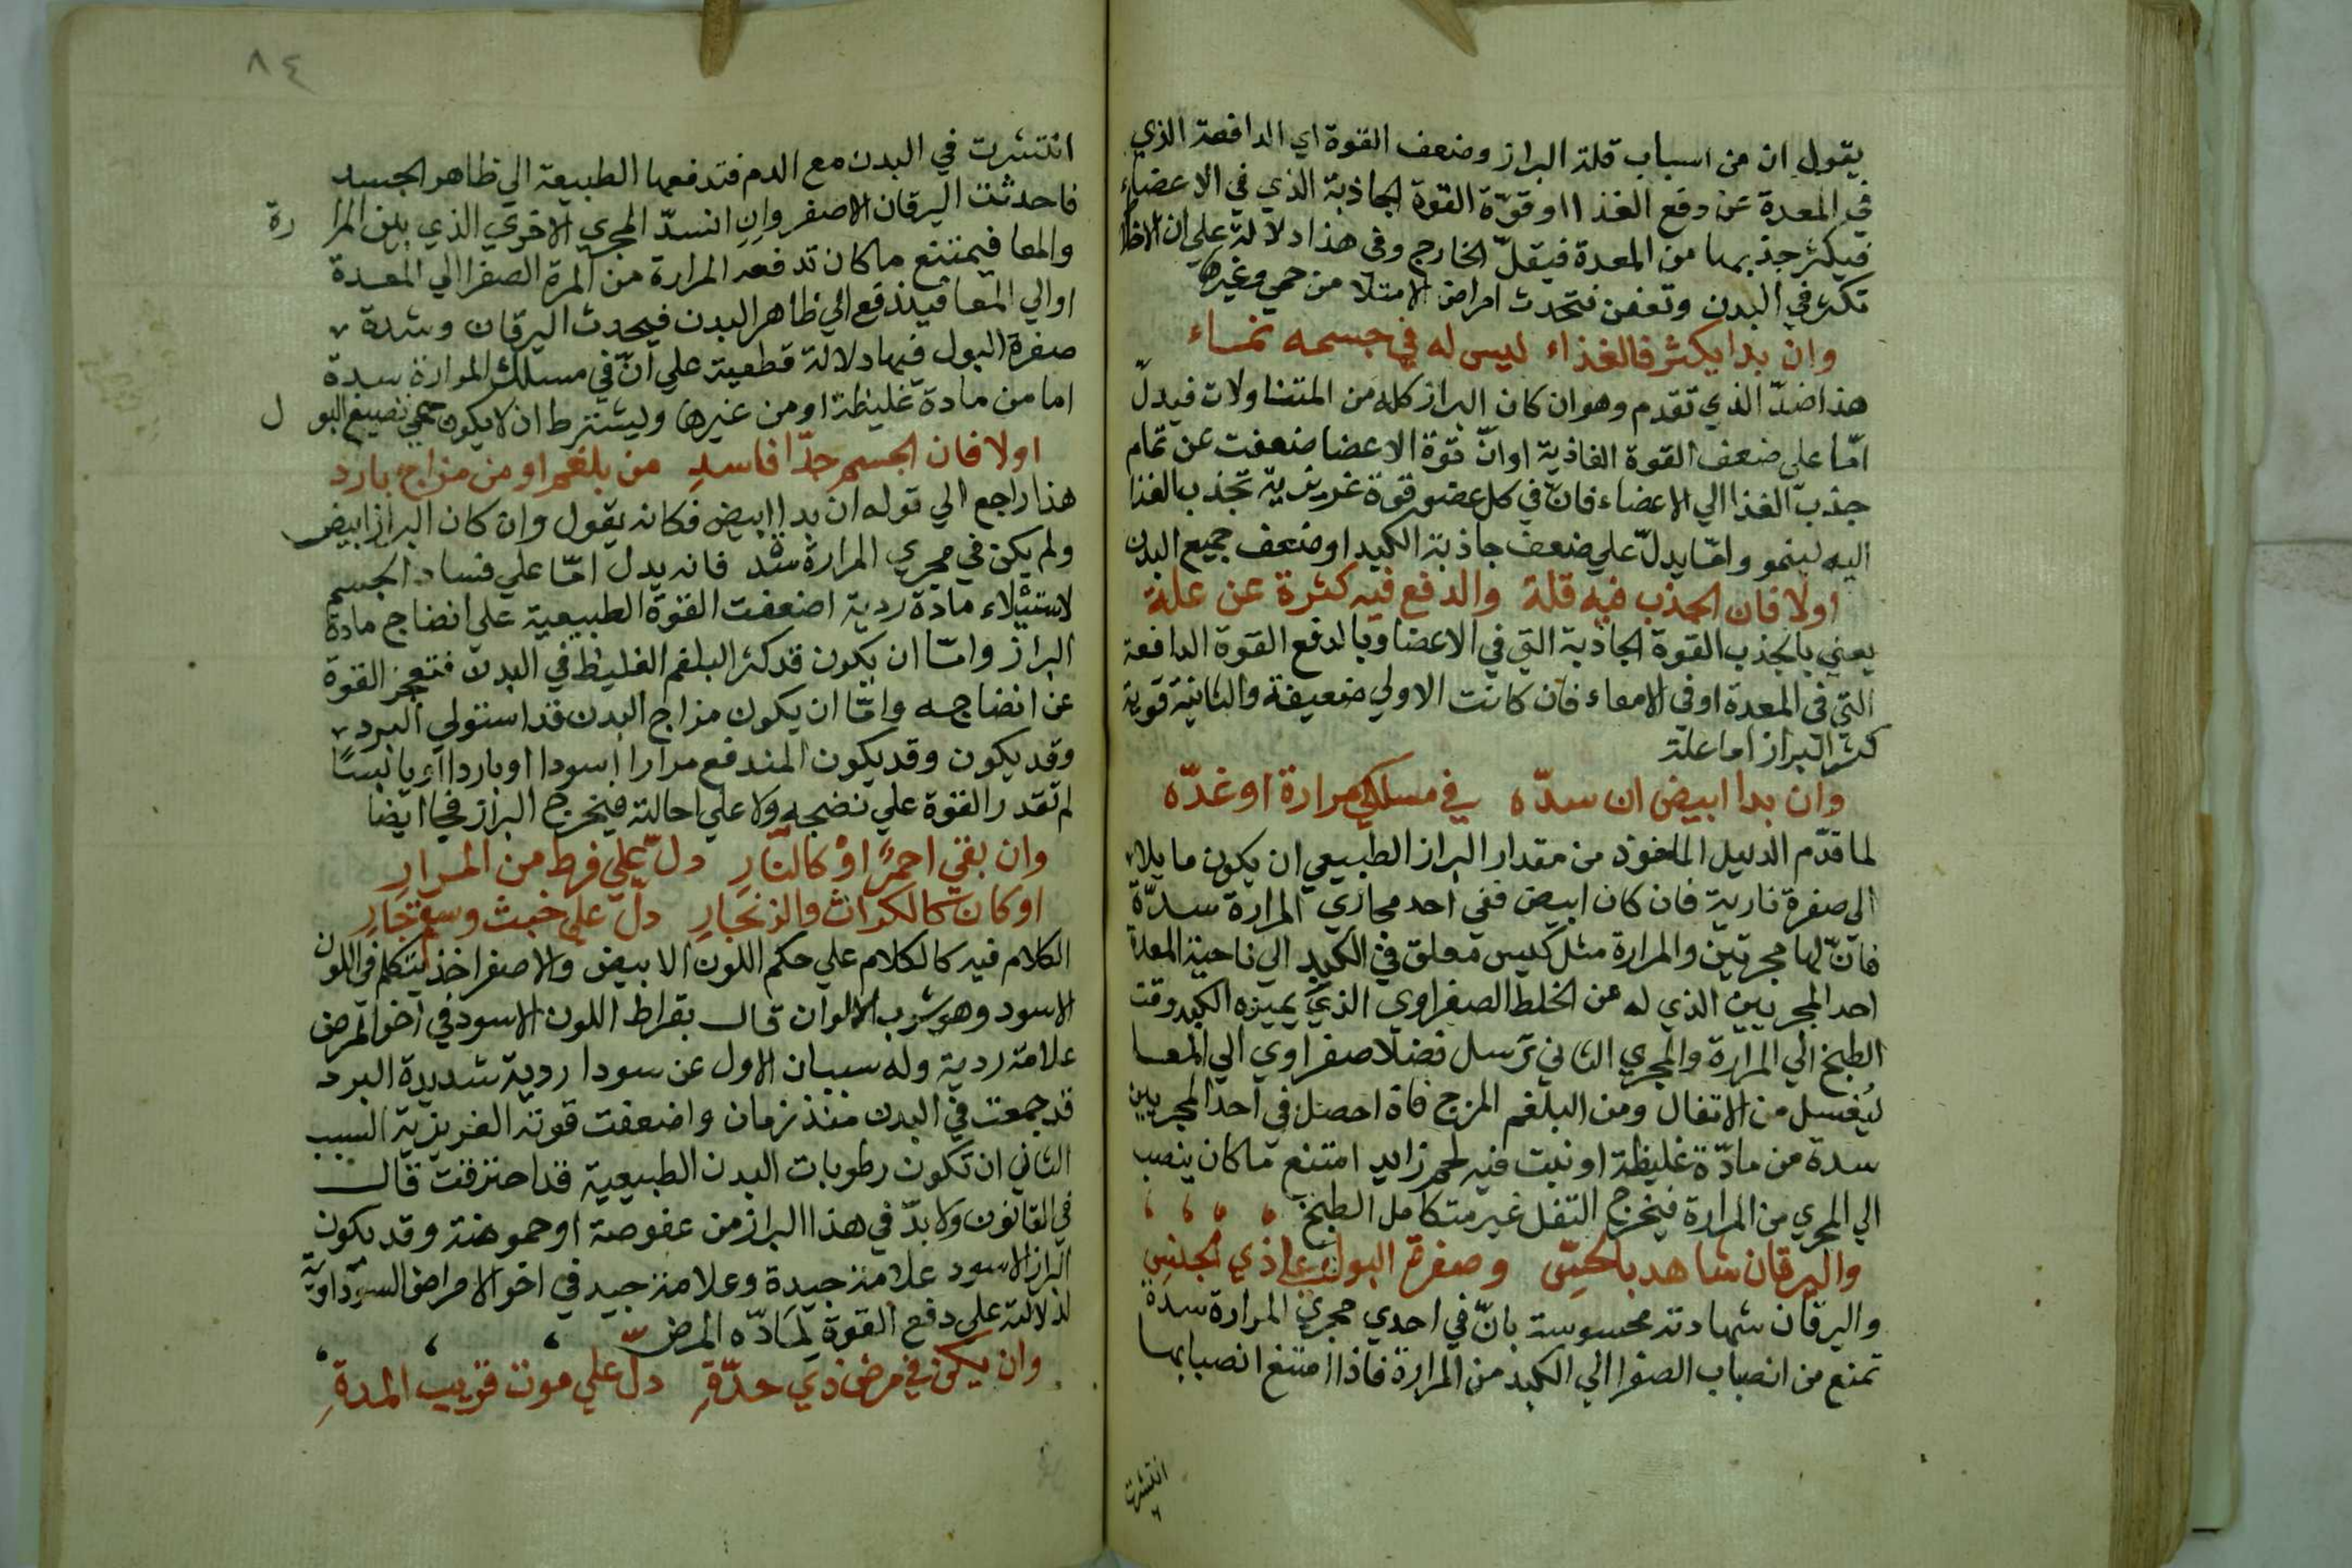 يقول ان من اسباب قلة البراز وضعف القوة اي الدافعة الذي
في المعدة عن دفع الغذا او قوّة القوة الجاذبة الذي في الاعضاء
فيكثر جذبها من المعدة فيقلّ الخارج وفي هذا دلالة علي ان الاخلا
تكثر في البدن وتعفن فتحدث امراض الامتلا من حمي وغيرها
وان بدا يكثر فالغذاء ليس له في جسمه نماء
هذا ضدّ الذي تقدم وهو ان كان البراز كله من المتناولات فيدلّ
امّا علي ضعف القوة الغاذية او انّ قوة الاعضا ضعفت عن تمام
جذب الغذا الي الاعضاء فانّ في كل عضو قوة غريزية تجذب الغذا
اليه لينمو وامّا يدلّ علي ضعف جاذبة الكبد او ضعف جميع البدن
اولا فان الجذب فيه قلة والدفع فيه كثرة عن علة
يعني بالجذب القوة الجاذبة التي في الاعضا وبالدفع القوة الدافعة
التي في المعدة او في الامعاء فان كانت الاولي ضعيفة والثانية قوية
كثر البراز اما علة
وان بدا ابيض ان سدّه في مسلكي مرارة او غدّه
لما قدّم الدليل الماخوذ من مقدار البراز الطبيعي ان يكون مايلا
الي صفرة نارية فان كان ابيض ففي احد مجاري المرارة سدّة
فانّ لها مجريين والمرارة مثل كيس معلق في الكبد الي ناحية المعدة
احد المجريين الذي له من الخلط الصفراوي الذي يميزه الكبد وقت
الطبخ الي المرارة والمجري الثاني ترسل فضلا صفراوي الي المعا
ليُغسل من الاتفال ومن البلغم المزج فاذا حصل في احد المجريين
سدة من مادّة غليظة او نبت فيه لحم زايد امتنع ما كان ينصب
الي المجري من المرارة فيخرج التفل غير متكامل الطبخ
واليرقان شاهد بالحسّ وصفرة البول علي ذي الجنس
واليرقان شهادته محسوسة بانّ في احدي مجري المرارة سدة
تمنع من انصباب الصفرا الي الكبد من المرارة فاذا امتنع انصبابها
انتشرت
٨٤
انتشرت في البدن مع الدم فتدفعها الطبيعة الي ظاهر الجسد
فاحدثت اليرقان الاصفر وان انسدّ المجري الاخري الذي بين المرارة
والمعا فيمتنع ما كان تدفعه المرارة من المرة الصفرا الي المعدة
او الي المعا فيندفع الي ظاهر البدن فيحدث اليرقان وشدة
صفرة البول فيها دلالة قطعية علي انّ في مسلك المرارة سدة
اما من مادة غليظة او من غيرها ويشترط ان لا يكون حمي تصبغ البول
اولا فان الجسم جدّا فاسد من بلغم او من مزاج بارد
هذا راجع الي قوله ان بدا ابيض فكانه يقول وان كان البراز ابيض
ولم يكن في مجري المرارة سدد فانه يدل امّا علي فساد الجسم
لاستيلاء مادة ردية اضعفت القوة الطبيعية علي انضاج مادة
البراز وامّا ان يكون قد كثر البلغم الغليظ في البدن فتعجز القوة
عن انضاجه وامّا ان يكون مزاج البدن قد استولي البرد
وقد يكون وقد يكون المندفع مرارا اسودا او باردا او يابسًا
لم تقدر القوة علي نضجه ولا علي احالته فيخرج البراز فجا ايضا
وان بقي احمرٌ او كالنّارِ دلّ علي فرط من المرارِ
او كان كالكراث والزنجارِ دلّ علي خبث وسقم جارِ
الكلام فيه كالكلام علي حكم اللون الابيض والاصفر اخذ يتكلم في اللون
الاسود وهو شرب الالوان قال بقراط اللون الاسود في اخر المرض
علامة ردية وله سببان الاول عن سودا ردية شديدة البرد
قد جمعت في البدن منذ زمان واضعفت قوته الغريزية السبب
الثاني ان تكون رطوبات البدن الطبيعية قد احترقت قال
في القانون ولا بدّ في هذا البراز من عفوصة او حموضة وقد يكون
البراز الاسود علامة جيدة وعلامة جيد في اخر الامراض السوداويّة
لدلالته علي دفع القوة لمادّه المرض
وان يكن في مرض ذي حدّةِ دلّ علي موت قريب المدةِ